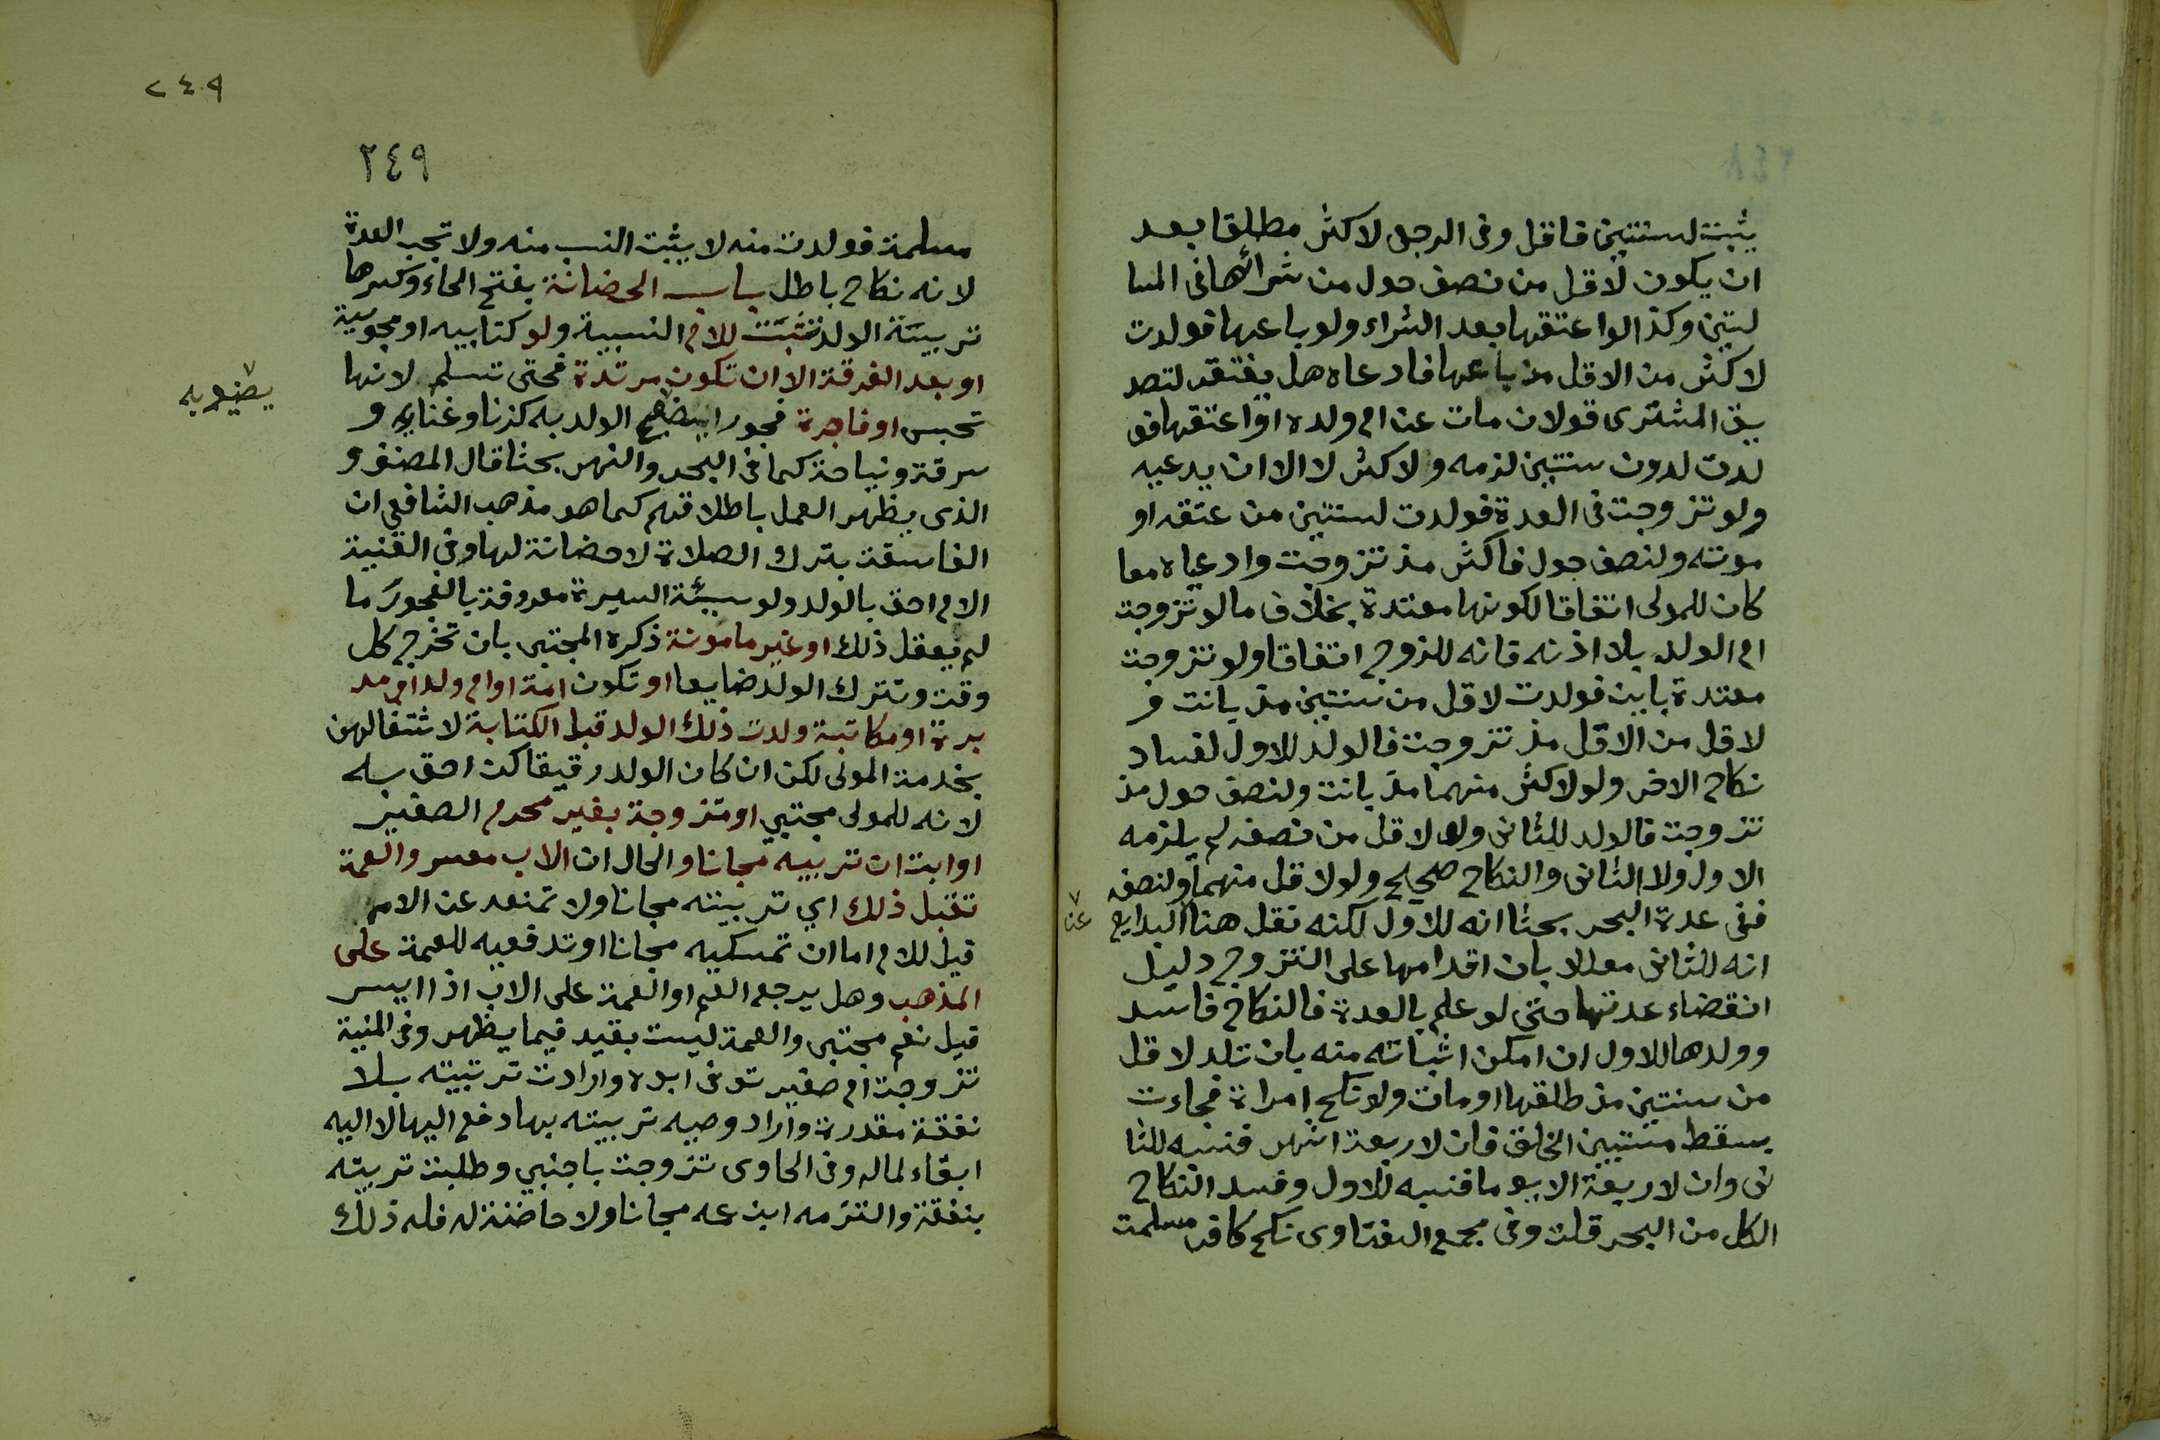 يثبت لسنتين فاقل وفى الرجعى لاكثر مطلقا بعد
ان يكون لاقل من نصف حول من شرائها فى المسا
لتين وكذا لواعتقها بعد الشراء ولو باعها فولدت
لاكثر من الاقل مذ باعها فادعاه هل يفتقر لتصد
يق المشترى قولان مات عن ام ولده او اعتقها فو
لدت لدون سنتين لزمه ولاكثر لا الا ان يدعيه
ولو تزوجت فى العدة فولدت لسنتين من عتقه او
موته ولنصف حول فاكثر مذ تزوجت وادعياه معا
كان للمولى اتفاقا لكونها معتدة بخلاف ما لو تزوجت
ام الولد بلا اذنه فانه للزوج اتفاقا ولو تزوجت
معتدة باين فولدت لاقل من سنتين مذ بانت و
لاقل من الاقل مذ تزوجت فالولد للاول لفساد
نكاح الاخر ولو لاكثر منهما مذ بانت ولنصف حول مذ
تزوجت فالولد للثانى ولو لاقل من نصفه لم يلزمه
الاول ولا الثانى والنكاح صحيح ولو لاقل منهما ولنصفه
ففى عدة البحر بحثا انه للاول لكنه نقل هنا البدايع
عن
انه للثانى معللا بان اقدامها على التزوج دليل
انقضاء عدتها حتى لو علم بالعدة فالنكاح فاسد
وولدها للاول ان امكن اثباته منه بان تلد لاقل
من سنتين مذ طلقها او مات ولو نكح امراة فجاءت
بسقط مستبين الخلق فان لاربعة اشهر فنسبه للثا
نى وان لاربعة الا يوما فنسبه للاول وفسد النكاح
الكل من البحر قلت وفى مجمع الفتاوى نكح كافر مسلمة
٢٤٩
٢٤٩
مسلمة فولدت منه لا يثبت النسب منه ولا تجب العدة
لانه نكاح باطل باب الحضانة بفتح الحاء وكسرها
تربية الولد تثبت للام النسبية ولو كتابيه او مجوسية
او بعد الفرقة الا ان تكون مرتدة فحتى تسلم لانها
تحبس او فاجرة فجورا يضيع الولد به كزنا وغناء و
يضيع به
سرقة ونياحة كما فى البحر والنهر بحثا قال المصنف و
الذى يظهر العمل باطلاقهم كما هو مذهب الشافعى ان
الفاسقة بترك الصلاة لا حضانة لها وفى القنية
الام احق بالولد ولو سيئة السيرة معروفة بالفجور ما
لم يعقل ذلك او غير مامونة ذكره المجتبى بان تخرج كل
وقت وتترك الولد ضايعا او تكون امة او ام ولد او مد
برة او مكاتبة ولدت ذلك الولد قبل الكتابة لاشتغالهن
بخدمة المولى لكن ان كان الولد رقيقا كن احق به
لانه للمولى مجتبي او متزوجة بغير محرم الصغير
او ابت ان تربيه مجانا والحال ان الاب معسر والعمة
تقبل ذلك اي تربيته مجانا ولا تمنعه عن الام
قيل للام اما ان تمسكيه مجانا او تدفعيه للعمة على
المذهب وهل يرجع العم او العمة على الاب اذا ايسر
قيل نعم مجتبى والعمة ليست بقيد فيما يظهر وفى المنية
تزوجت ام صغير توفى ابوه وارادت تربيته بلا
نفقة مقدرة واراد وصيه تربيته بها دفع اليها لا اليه
ابقاء لماله وفى الحاوى تزوجت باجنبي وطلبت تربيته
بنفقة والتزمه ابن عمه مجانا ولا حاضنة له فله ذلك